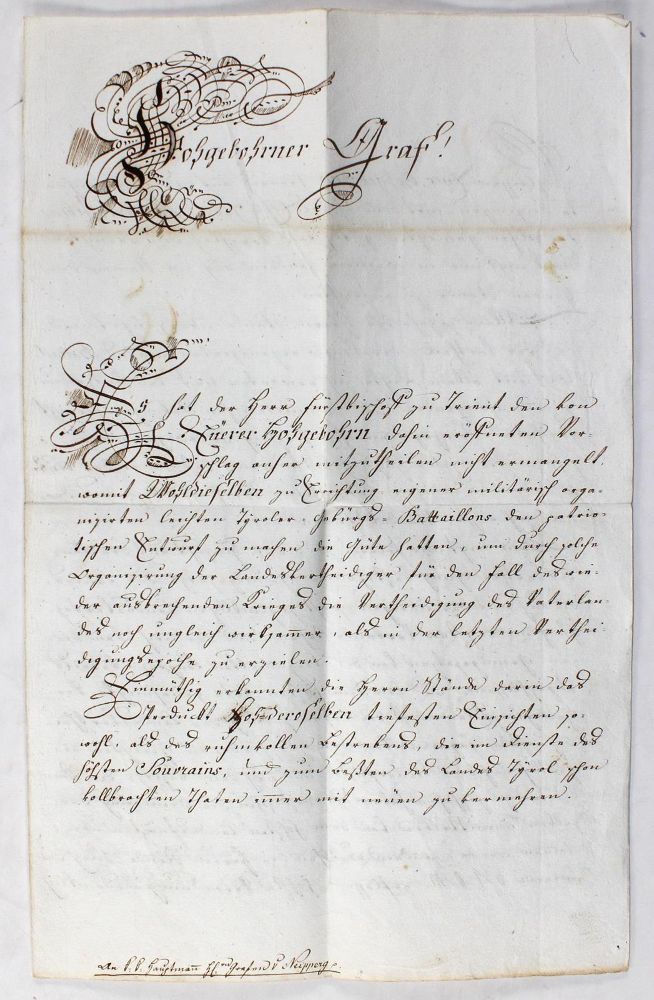 Hochgebohrner Graf!
Es hat der Herr Fürstbischof zu Trient den von
Euerer Hochgebohrn dahin eröffneten Vor-
schlag anher mitzutheilen nicht ermangelt,
womit Wohldieselben zu Errichtung eigener militärisch orga-
nizirten leichten Tyroler-Gebürgs-Battaillons den patrio-
tischen Entwurf zu machen die Güte hatten, um durch solche
Organizirung der Landesvertheidiger für den Fall des wie-
der ausbrechenden Krieges die Vertheidigung des Vaterlan-
des noch ungleich wirksammer, als in der letzten Verthei-
digungsepoche zu erzielen.
Einmüthig erkannten die Herrn Stände darin das
Produckt Hochderoselben tiefesten Einsichten so-
wohl, als des ruhmvollen Bestrebens, die im Dienste des
höchsten Souvrains, und zum Beßten des Landes Tyrol schon
vollbrachten Thaten immer mit neüen zu vermehren.
An k. k. Hauptmann H. Grafen v Neipperg.